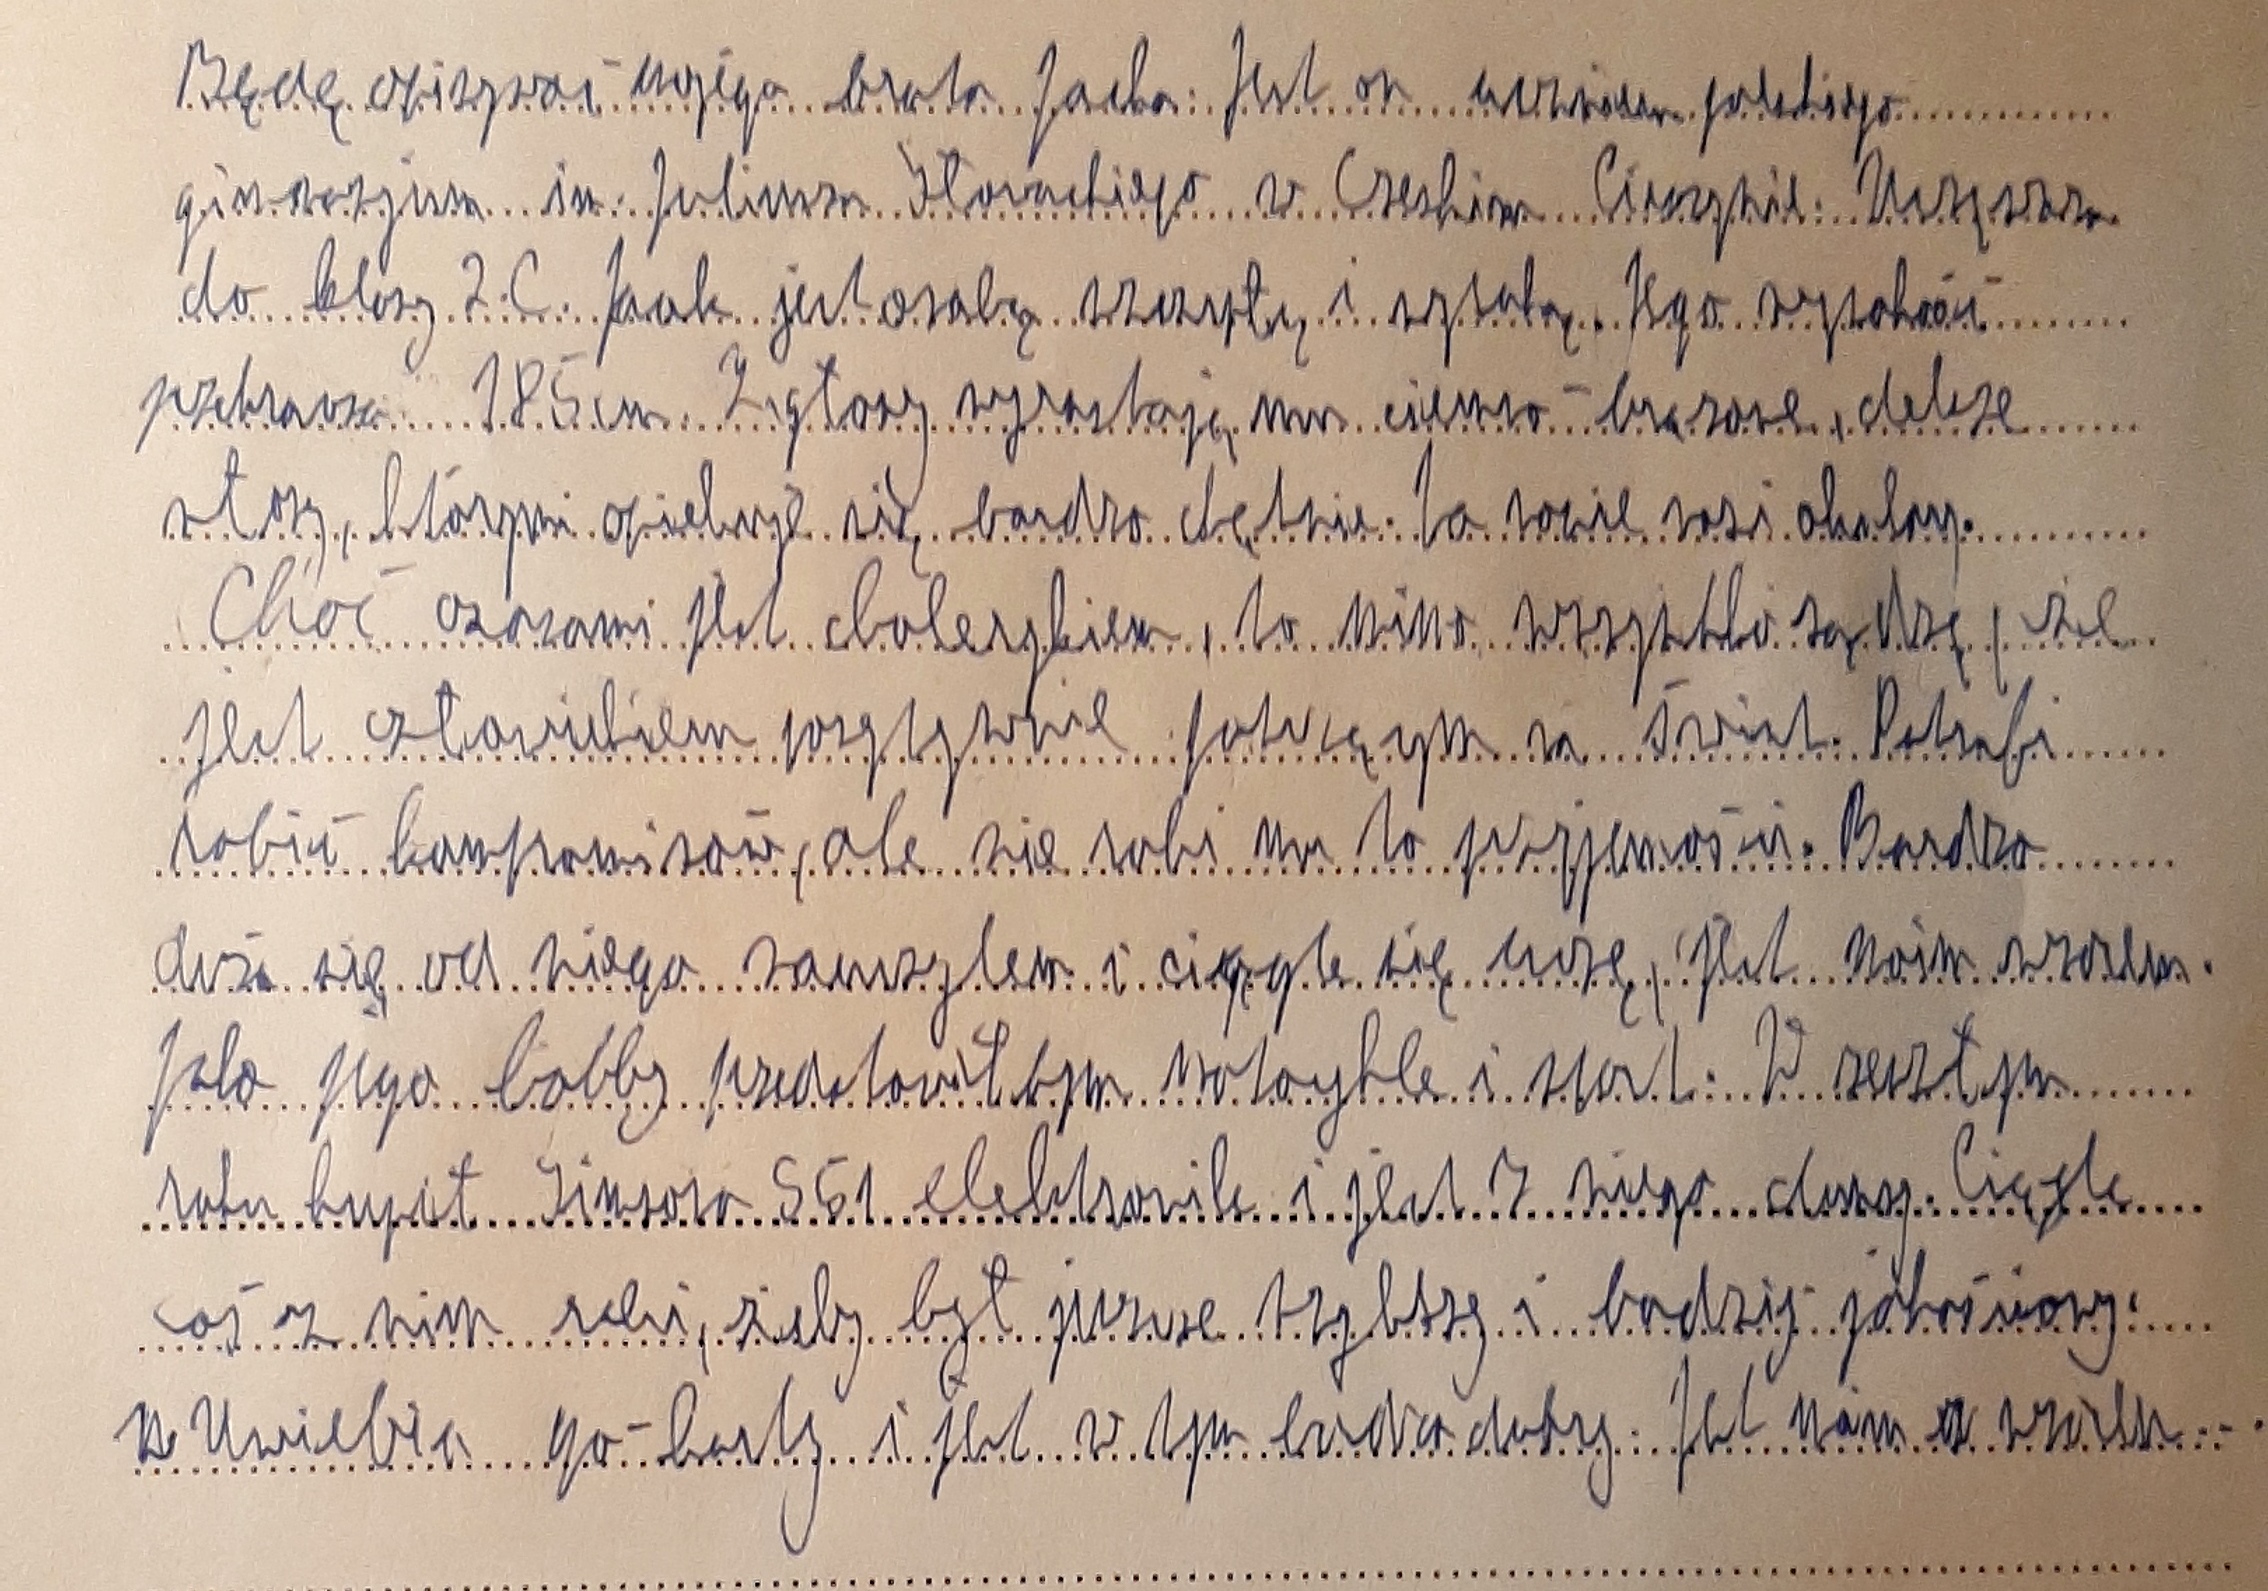 Będę opisywać mojego brata Jacka. Jest on uczniem polskiego
gimnazjum im. Juliusza Słowackiego w Czeskim Cieszynie. Uczęszcza
do klasy 2.C. Jacek jest osobą szczupłą i wysoką. Jego wysokość
przekracza 185 cm. Z głowy wyrastają mu ciemno-brązowe, dełsze
włosy, którymi opiekuje się bardzo chętnie. Na nosie nosi okulary.
Choć czasami jest cholerykiem, to mimo wszystko sądzę, że
jest człowiekiem pozytywnie patrzącym na świat. Potrafi
robić kompromisów, ale nie robi mu to przyjemości. Bardzo
dużo się od niego nauczyłem i ciągle się uczę, jest moim wzorem.
Jako jego hobby przedstawiłbym motocykle i sport. W zeszłym
roku kupił Simsona S51 elektronik i jest z niego dumny. Ciągle
coś z nim robi, żeby był jeszcze szybszy i bardziej jakościowy.
Uwielbia go-karty i jest w tym bardzo dobry. Jest moim wzorem.